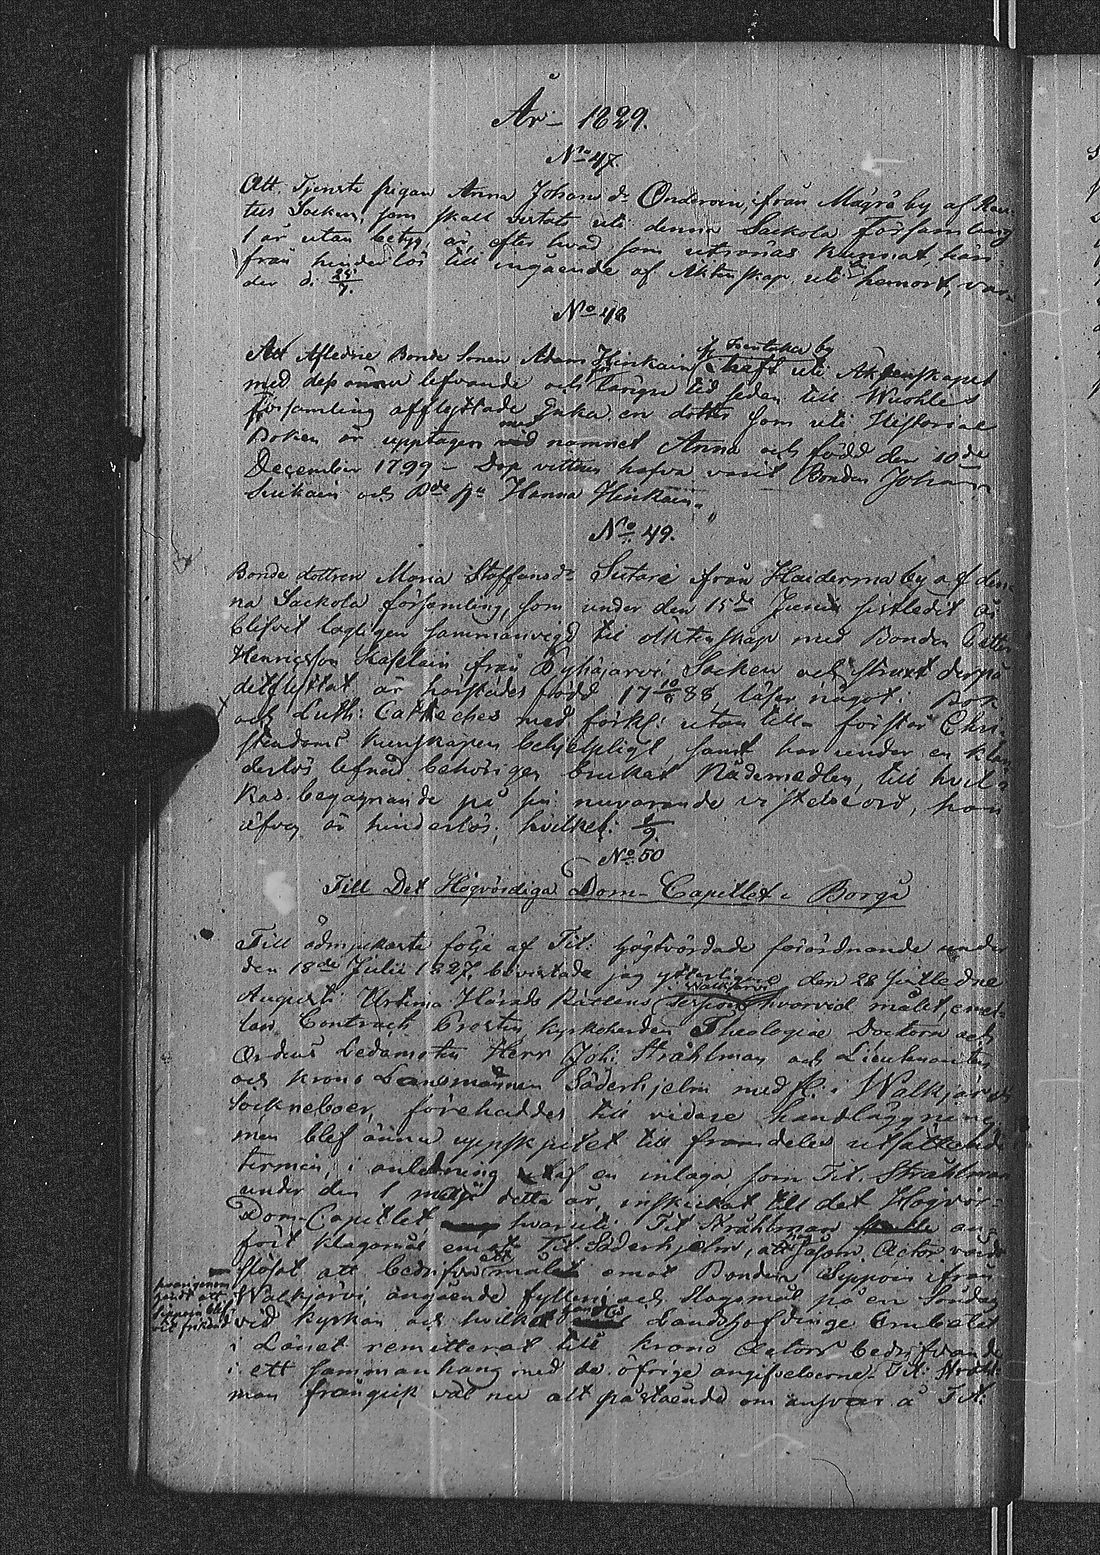 År 1829.
No 47.
Att Tjenste pigan Anna Johans dr Onderoin, från Mäyrä by af Rau
tus Socken, som skall vistats uti denna Sackola Församling
1 år utan betyg, är, efter hvad som utrönas kunnat här
från hinderlös till ingående af Äktenskap uti hemort, var
der d. 25/7.
No 48
Att Afledne Bonde Sonen Adam Hinkain af by haft uti Äktenskapet
med dess ännu lefvande och längre tid sedan till Wuohles
församling afflyttade Enka en dotter som uti Historiae
Boken är upptagen med namnet Anna och född den 10de
December 1799 – Dop vittnen hafva varit Bonden Johan
och Bde hu Hanna Hinkain.
No 49.
Bonde dottren Maria Staffans dr Sutari från Haiderma by af den
na Sackola församling, som under den 15de Junii sistledit är
blifvit lagligen sammanvigd til äktenskap med Bonden Petter
Henricsson från Pyhäjärvi Socken och straxt derpå
ditflyttat är härstädes född 17 10/6 88 läser något i Bok
och Luth: Catheches med förkl: utan till – förstår Chri-
stendoms kunskapen behjelpligt, samt har under en klan
derlös lefnad behörigen brukat Nådemedlen, till hvil-
kas begagnande på sin nuvarande vistelse ord, hon
äfven är hinderlös; hvilket: 1/9.
No 50
Till Det Högvördiga Dom-Capitlet i Borgå
Till ödmjukaste följe af Tit: högtvördade förordnande under
den 18de Julii 1827 bevistade jag ytterligare den 28 sistledne
Augusti Ortens Härads Rättens Walkjärvi hvarvid målet, emel-
lan Contract Prosten kyrkoherden Theologiae Doctorn och
Ordens Ledamoten Herr Joh: Stråhlman och Lieutnanten
och krono Länsmannen Söderhjelm med fl. i Walkjärvi
Sockneboer, förehaddes till vidare handläggning,
men blef ännu uppskjutet till framdeles utsättande
termin, i anledning af en inlaga som Tit. Stråhlman
under den 1 detta år, inskickat till det Högvör-
Dom-Capitlet hvaruti Tit Stråhlman an
fört klagomål emot Tit. Söderhjelm, att såsom Actor vårds
slösat att bedrifva målet emot Bonden Seppoin från
Walkjärvi, angående fylleri och slagsmål på en Söndag
vid kyrkan och hvilket Landshöfdinge Embetet
i Länet remitterat till krono Actors bedrifvande
i ett sammanhang med de öfrige angifvelserne. Tit: Stråhl-
man frångick väl nu allt påstående om ansvar å Tit.